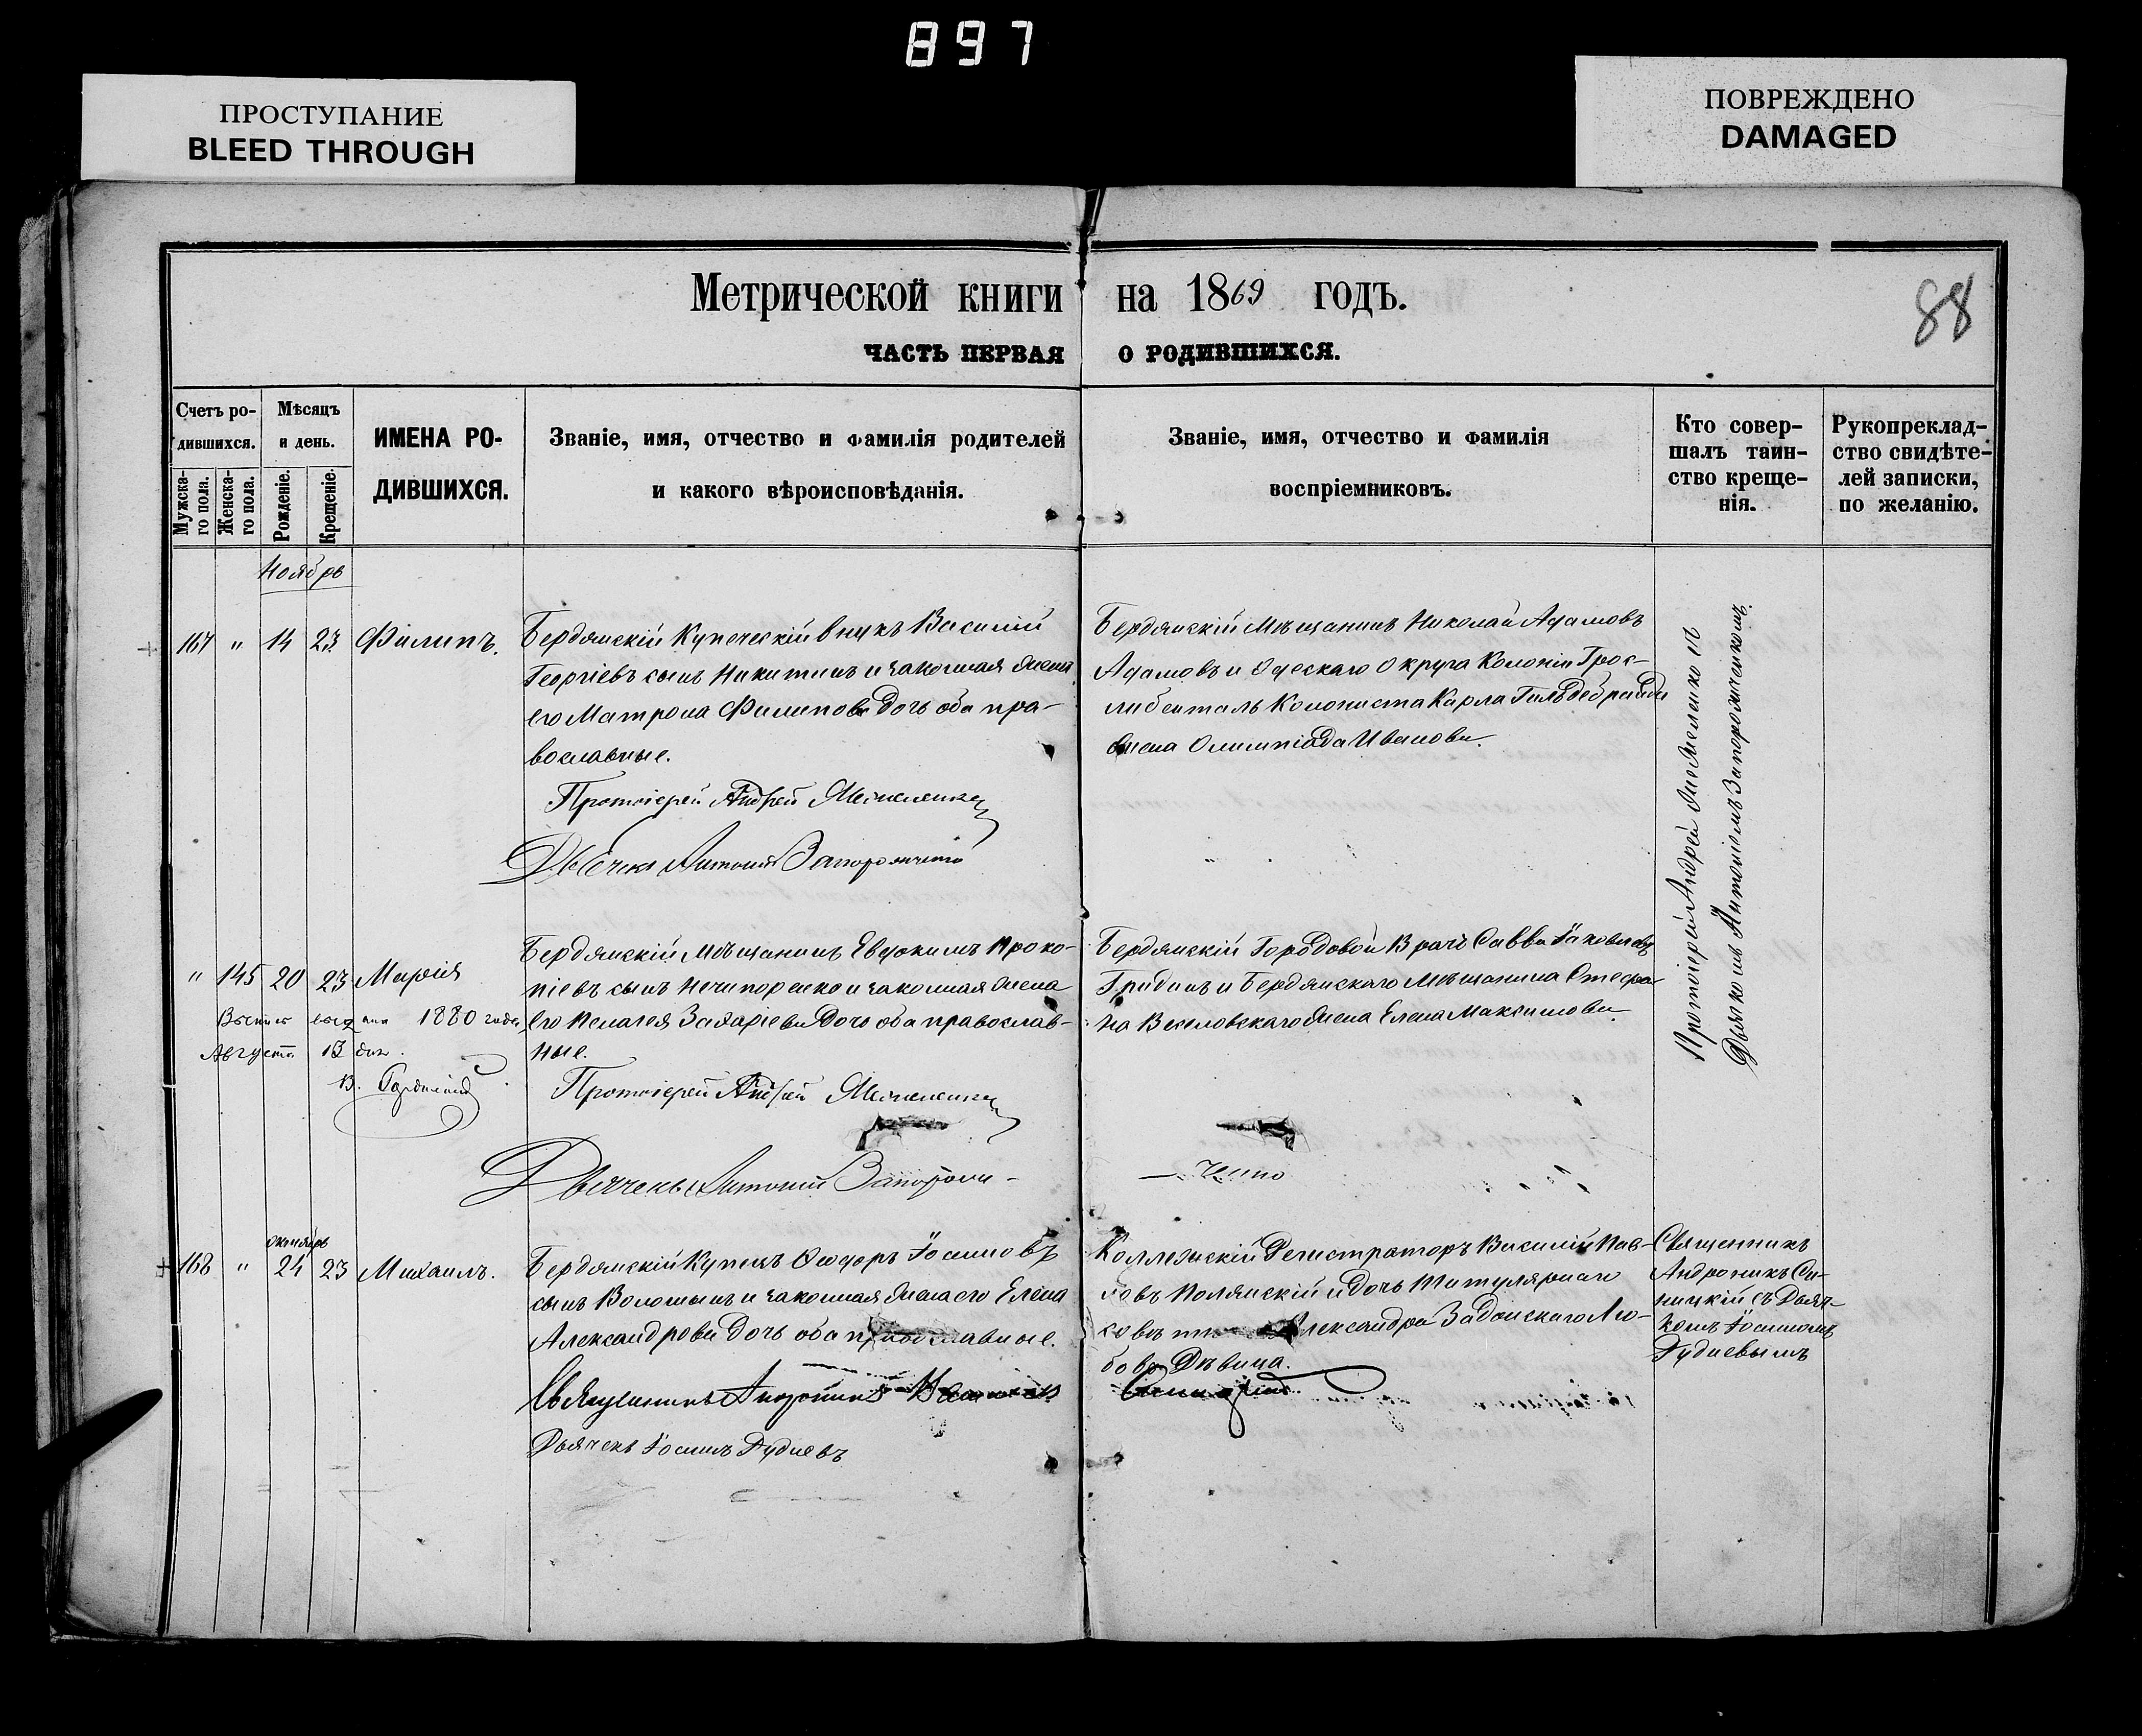 897
ПРОСТУПАНИЕ
BLEED THROUGH
ПОВРЕЖДЕНО
DAMAGED
Метрической книги на 1869 годъ.
88
ЧАСТЬ ПЕРВАЯ О РОДИВШИХСЯ.
Счетъ ро-
дившихся.
Мужска-
го пола.
Женска-
го пола.
Мѣсяцъ
и день.
Рожденіе.
Крещеніе.
ИМЕНА РО-
ДИВШИХСЯ.
Званіе, имя, отчество и фамилія родителей
и какого вѣроисповѣданія.
Званіе, имя, отчество и фамилія
воспріемниковъ.
Кто совер-
шалъ таин-
ство креще-
нія.
Рукоприклад-
ство свидѣте-
лей записки,
по желанію.
Ноябрь
167 " 14 23 Филипъ.
Бердянскій Купеческій внукъ Василій
Георгіевъ сынъ Никитинъ и законная жена
его Матрона Филипова дочь оба пра-
вославные.
Протоіерей Андрей
Дьячекъ Антоній
Бердянскій Мѣщанинъ Николай Адамовъ
Адамовъ и Одескаго Округа Колоніи Грос-
либенталь Колониста Карла Гильдебранда
жена Олимпіада Иванова.
Протоіерей Андрей съ
Дьячкомъ Антоніемъ Запорожченкомъ.
" 145 20 23 Марія
1880 года
Августа 13 дня.
В.
Бердянскій Мѣщанинъ Евдокимъ Проко-
піевъ сынъ Нечипоренко и законная жена
его Пелагея Захаріева дочь оба православ-
ные.
Протоіерей Андрей
Дьячекъ Антоній Запорож-
Бердянскій Городовой Врачъ Савва Іаковлевъ
Гридинъ и Бердянскаго Мѣщанина Стефа-
на Веселовскаго жена Елена Максимова.
— ченко
Октябрь
168 " 24 23 Михаилъ.
Бердянскій Купецъ Ѳеодоръ Іосифовъ
сынъ Волошинъ и законная жена его Елена
Александрова дочь оба православные.
Священникъ Андроникъ
Дьячекъ Іосифъ Рудневъ
Коллежскій Регистраторъ Василій Пав-
ловъ Полянскій и дочь Титулярнаго
Александра Задонскаго Лю-
бовь Дѣвица.
Священникъ
Андроникъ Си-
ницкій съ Дьяч-
комъ Іосифомъ
Рудневымъ